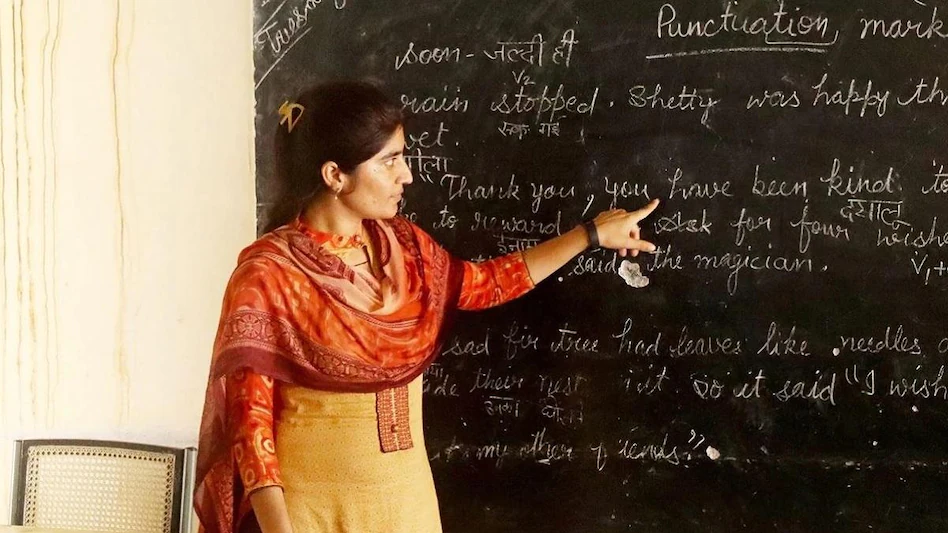 Punctuation, mark
soon - जल्दी ही
V2
rain stopped. Shetty was happy th
रुक गई
wet.
गीला
"Thank you, you have been kind to
दयालु
to reward, Ask for four wishe
ईनाम
said the magician. V1+
sad fir tree had leaves like needles a
their nest it so it said "I wish
उनका
my other friends."